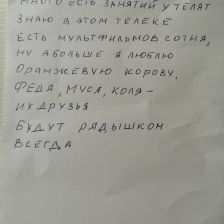 МНОГО ЕСТЬ ЗАНЯТИЙ У ТЕЛЯТ
ЗНАЮ В ЭТОМ ТЕЛЕКЕ
ЕСТЬ МУЛЬТФИЛЬМОВ СОТНЯ,
НУ А БОЛЬШЕ Я ЛЮБЛЮ
ОРАНЖЕВУЮ КОРОВУ.
ФЕДА, МУСЯ, КОЛЯ –
ИХ ДРУЗЬЯ
БУДУТ РЯДЫШКОМ
ВСЕГДА